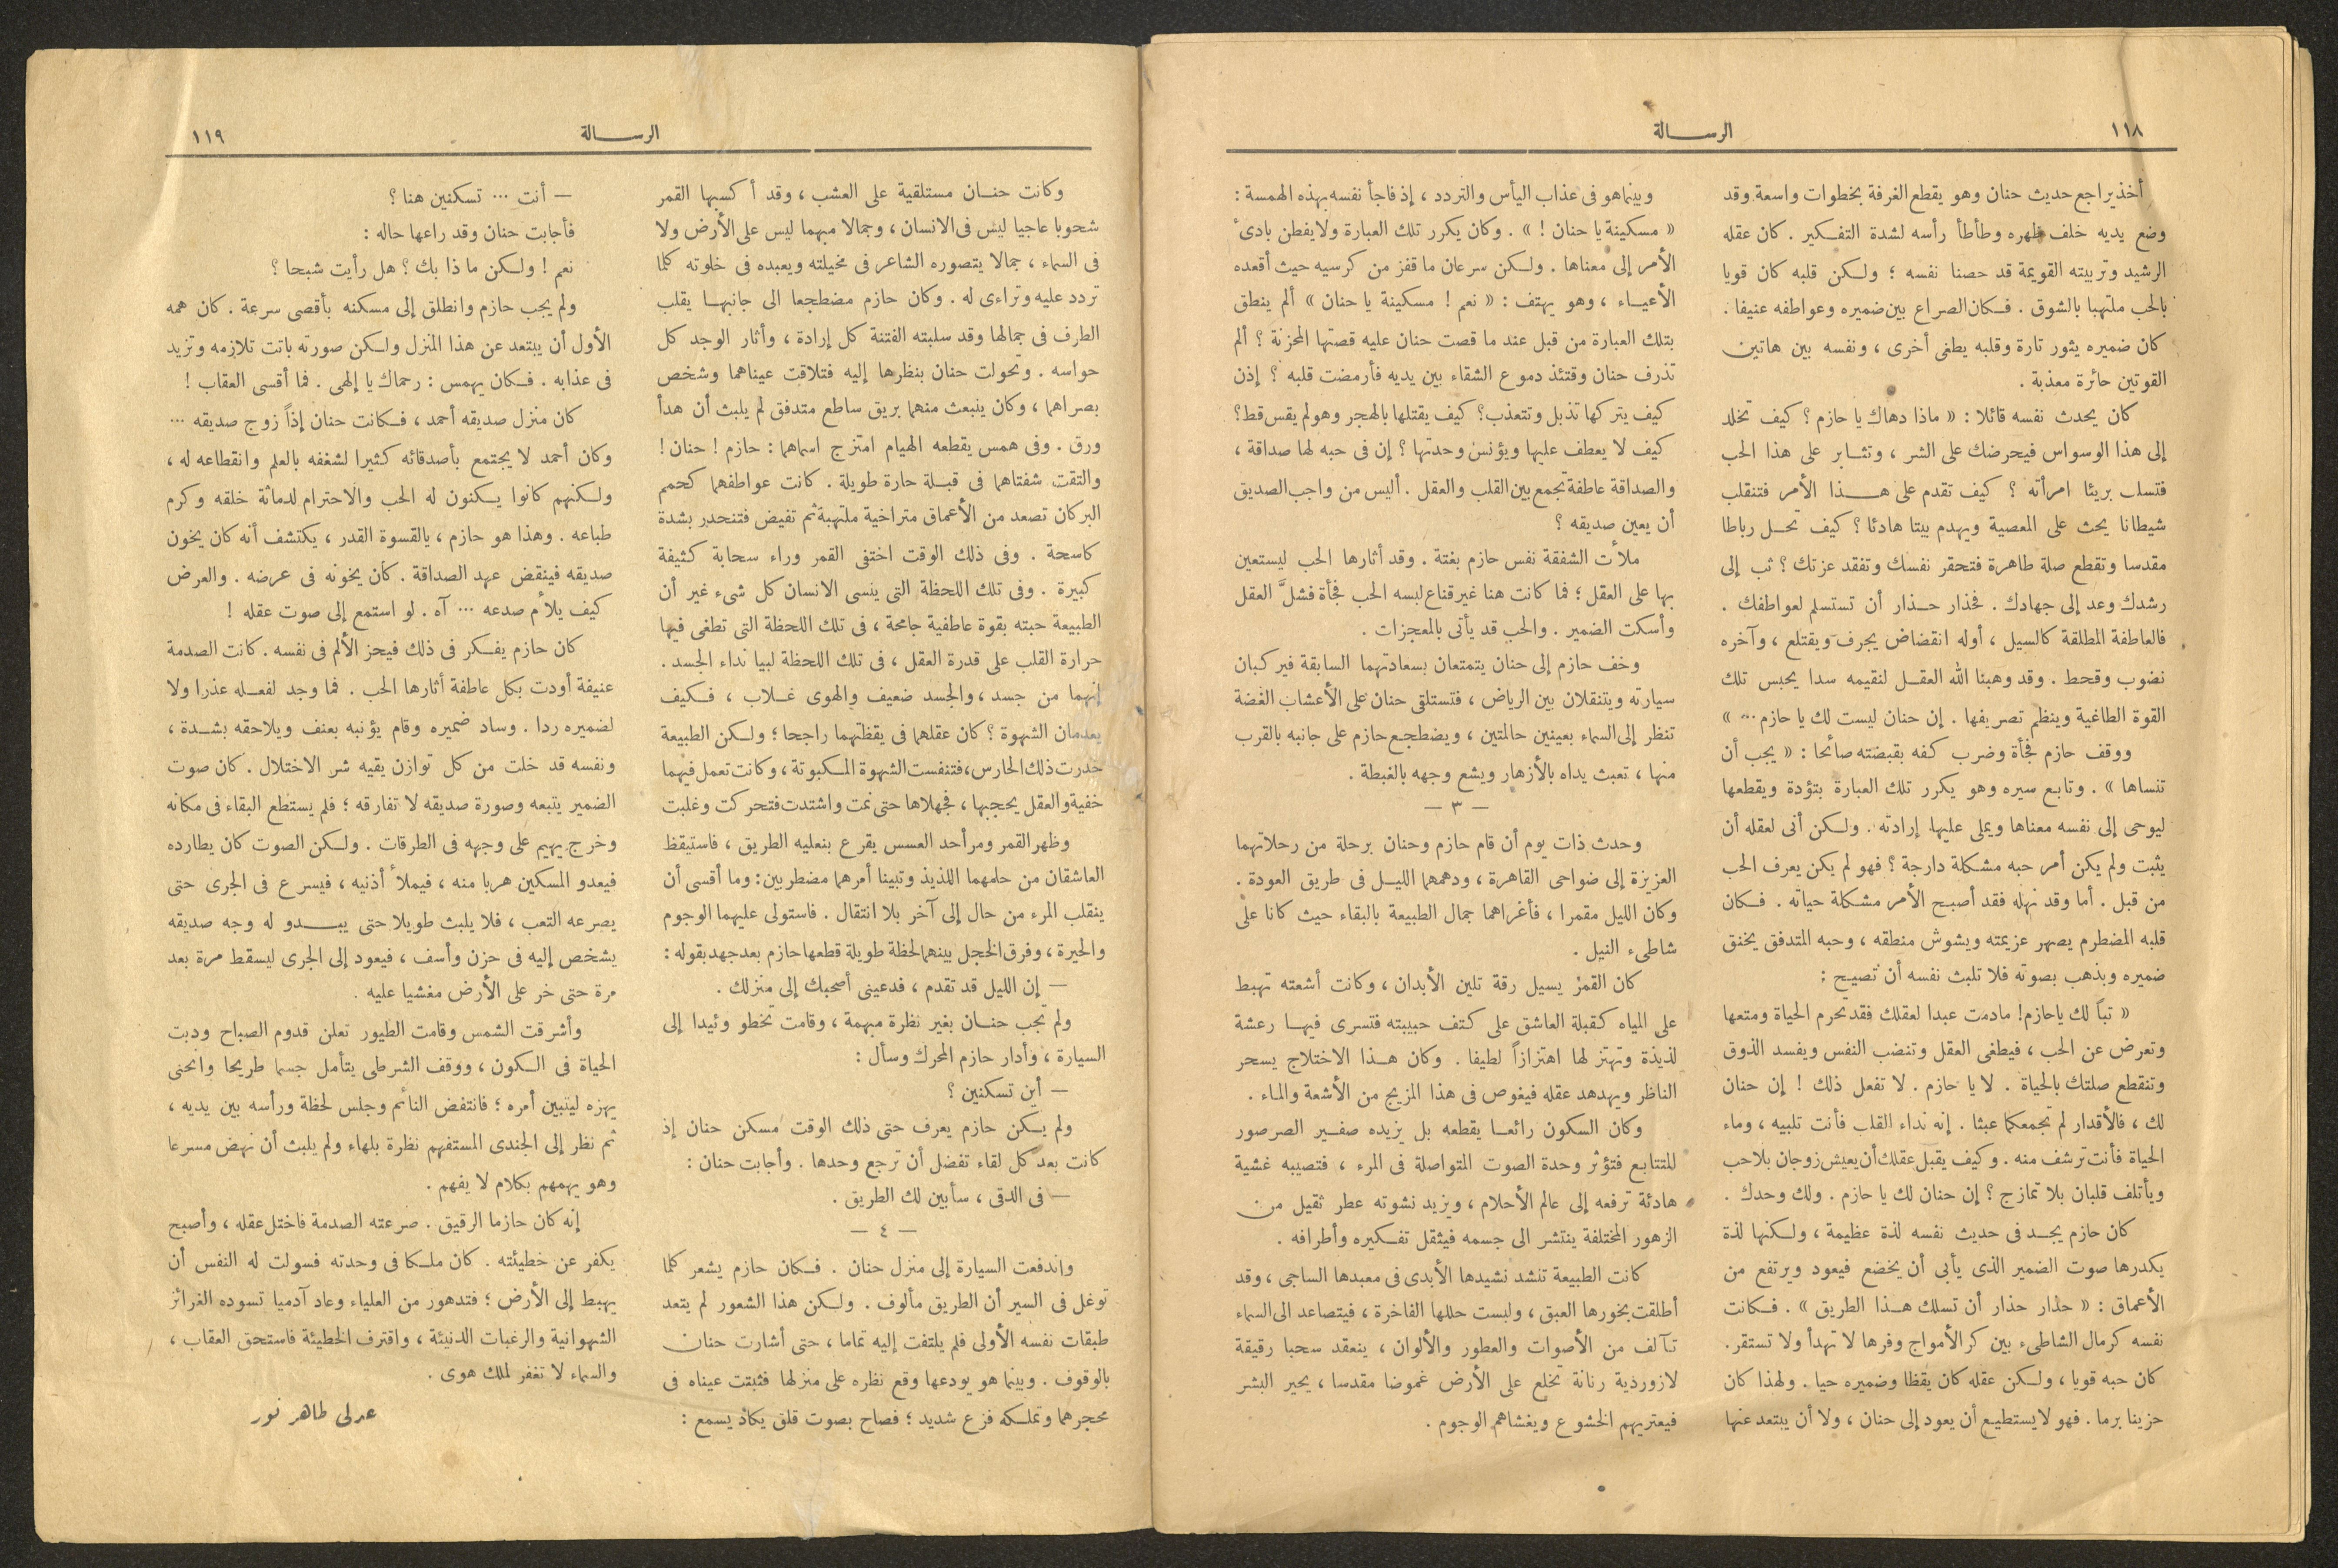 ١١٨
الرسالة
أخذ يراجع حديث حنان وهو يقطع الغرفة بخطوات واسعة وقد
وضع يديه خلف ظهره وطأطأ رأسه لشدة التفكير . كان عقله
الرشيد وتربيته القويمة قد حصنا نفسه ؛ ولكن قلبه كان قويا
بالحب ملتهبا بالشوق . فكان الصراع بين ضميره وعواطفه عنيفا .
كان ضميره يثور تارة وقلبه يطغى أخرى ، ونفسه بين هاتين
القوتين حائرة معذبة .
كان يحدث نفسه قائلا : « ماذا دهاك يا حازم ؟ كيف تخلد
إلى هذا الوسواس فيحرضك على الشر ، وتثابر على هذا الحب
فتسلب بريئا امرأته ؟ كيف تقدم على هذا الأمر فتنقلب
شيطانا يحث على المعصية ويهدم بيتا هادئا ؟ كيف تحل رباطا
مقدسا وتقطع صلة طاهرة فتحقر نفسك وتفقد عزتك ؟ ثب إلى
رشدك وعد إلى جهادك . فحذار حذار أن تستسلم لعواطفك .
فالعاطفة المطلقة كالسيل ، أوله انقضاض يجرف ويقتلع ، وآخره
نضوب وقحط . وقد وهبنا الله العقل لنقيمه سدا يحبس تلك
القوة الطاغية وينظم تصريفها . إن حنان ليست لك يا حازم ... »
ووقف حازم فجأة وضرب كفه بقبضته صائحا : « يجب أن
تنساها » . وتابع سيره وهو يكرر تلك العبارة بتؤدة ويقطعها
ليوحى إلى نفسه معناها ويملى عليها إرادته . ولكن أنى لعقله أن
يثبت ولم يكن أمر حبه مشكلة دارجة ؟ فهو لم يكن يعرف الحب
من قبل . أما وقد نهله فقد أصبح الأمر مشكلة حياته . فكان
قلبه المضطرم يصهر عزيمته ويشوش منطقه ، وحبه المتدفق يخنق
ضميره ويذهب بصوته فلا تلبث نفسه أن تصيح :
« تباً لك يا حازم ! مادمت عبدا لعقلك فقد تحرم الحياة ومتعها
وتعرض عن الحب ، فيطغى العقل وتنضب النفس ويفسد الذوق
وتنقطع صلتك بالحياة . لا يا حازم . لا تفعل ذلك ! إن حنان
لك ، فالأقدار لم تجمعكما عبثا . إنه نداء القلب فأنت تلبيه ، وماء
الحياة فأنت ترشف منه . وكيف يقبل عقلك أن يعيش زوجان بلا حب
ويأتلف قلبان بلا تمازج ؟ إن حنان لك يا حازم . ولك وحدك .
كان حازم يجد فى حديث نفسه لذة عظيمة ، ولكنها لذة
يكدرها صوت الضمير الذى يأبى أن يخضع فيعود ويرتفع من
الأعماق : « حذار حذار أن تسلك هذا الطريق » . فكانت
نفسه كرمال الشاطىء بين كر الأمواج وفرها لا تهدأ ولا تستقر .
كان حبه قويا ، ولكن عقله كان يقظا وضميره حيا . ولهذا كان
حزينا برما . فهو لا يستطيع أن يعود إلى حنان ، ولا أن يبتعد عنها
وبينما هو فى عذاب اليأس والتردد ، إذ فاجأ نفسه بهذه الهمسة :
« مسكينة يا حنان ! » . وكان يكرر تلك العبارة ولا يفطن بادىء
الأمر إلى معناها . ولكن سرعان ما قفز من كرسيه حيث أقعده
الأعياء ، وهو يهتف : « نعم ! مسكينة يا حنان » ألم ينطق
بتلك العبارة من قبل عند ما قصت حنان عليه قصتها المحزنة ؟ ألم
تذرف حنان وقتئذ دموع الشقاء بين يديه فأرمضت قلبه ؟ إذن
كيف يتركها تذبل وتتعذب ؟ كيف يقتلها بالهجر وهو لم يقس قط ؟
كيف لا يعطف عليها ويؤنس وحدتها ؟ إن فى حبه لها صداقة ،
والصداقة عاطفة تجمع بين القلب والعقل . أليس من واجب الصديق
أن يعين صديقه ؟
ملأت الشفقة نفس حازم بغتة . وقد أثارها الحب ليستعين
بها على العقل ؛ فما كانت هنا غير قناع لبسه الحب فجأة فشلَّ العقل
وأسكت الضمير . والحب قد يأتى بالمعجزات .
وخف حازم إلى حنان يتمتعان بسعادتهما السابقة فيركبان
سيارته ويتنقلان بين الرياض ، فتستلقى حنان على الأعشاب الغضة
تنظر إلى السماء بعينين حالمتين ، ويضطجع حازم على جانبه بالقرب
منها ، تعبث يداه بالأزهار ويشع وجهه بالغبطة .
— ٣ —
وحدث ذات يوم أن قام حازم وحنان برحلة من رحلاتهما
العزيزة إلى ضواحى القاهرة ، ودهمهما الليل فى طريق العودة .
وكان الليل مقمرا ، فأغراهما جمال الطبيعة بالبقاء حيث كانا على
شاطىء النيل .
كان القمر يسيل رقة تلين الأبدان ، وكانت أشعته تهبط
على المياه كقبلة العاشق على كتف حبيبته فتسرى فيها رعشة
لذيذة وتهتز لها اهتزازاً لطيفا . وكان هذا الاختلاج يسحر
الناظر ويهدهد عقله فيغوص فى هذا المزيج من الأشعة والماء .
وكان السكون رائعا يقطعه بل يزيده صفير الصرصور
المتتابع فتؤثر وحدة الصوت المتواصلة فى المرء ، فتصيبه غشية
هادئة ترفعه إلى عالم الأحلام ، ويزيد نشوته عطر ثقيل من
الزهور المختلفة ينتشر الى جسمه فيثقل تفكيره وأطرافه .
كانت الطبيعة تنشد نشيدها الأبدى فى معبدها الساجى ، وقد
أطلقت بخورها العبق ، ولبست حللها الفاخرة ، فيتصاعد الى السماء
تآلف من الأصوات والعطور والألوان ، ينعقد سحبا رقيقة
لازوردية رنانة تخلع على الأرض غموضا مقدسا ، يحير البشر
فيعتريهم الخشوع ويغشاهم الوجوم .
الرسالة
١١٩
وكانت حنان مستلقية على العشب ، وقد أكسبها القمر
شحوبا عاجيا ليس فى الانسان ، وجمالا مبهما ليس على الأرض ولا
فى السماء ، جمالا يتصوره الشاعر فى مخيلته ويعبده فى خلوته كلما
تردد عليه وتراءى له . وكان حازم مضطجعا الى جانبها يقلب
الطرف فى جمالها وقد سلبته الفتنة كل إرادة ، وأثار الوجد كل
حواسه . وتحولت حنان بنظرها إليه فتلاقت عيناهما وشخص
بصراهما ، وكان ينبعث منهما بريق ساطع متدفق لم يلبث أن هدأ
ورق . وفى همس يقطعه الهيام امتزج اسماهما : حازم ! حنان !
والتقت شفتاهما فى قبلة حارة طويلة . كانت عواطفهما كحمم
البركان تصعد من الأعماق متراخية ملتهبة ثم تفيض فتنحدر بشدة
كاسحة . وفى ذلك الوقت اختفى القمر وراء سحابة كثيفة
كبيرة . وفى تلك اللحظة التى ينسى الانسان كل شىء غير أن
الطبيعة حبته بقوة عاطفية جامحة ، فى تلك اللحظة التى تطغى فيها
حرارة القلب على قدرة العقل ، فى تلك اللحظة لبيا نداء الجسد .
إنهما من جسد ، والجسد ضعيف والهوى غلاب ، فكيف
يعدمان الشهوة ؟ كان عقلهما فى يقظتهما راجحا ؛ ولكن الطبيعة
خدرت ذلك الحارس، فتنفست الشهوة المكبوتة ، وكانت تعمل فيهما
خفية والعقل يحجبها ، فجهلاها حتى نمت واشتدت فتحركت وغلبت
وظهر القمر ومر أحد العسس يقرع بنعليه الطريق ، فاستيقظ
العاشقان من حلمهما اللذيذ وتبينا أمرهما مضطربين : وما أقسى أن
ينقلب المرء من حال إلى آخر بلا انتقال . فاستولى عليهما الوجوم
والحيرة ، وفرق الخجل بينهما لحظة طويلة قطعها حازم بعد جهد بقوله :
— إن الليل قد تقدم ، فدعينى أصحبك إلى منزلك .
ولم تجب حنان بغير نظرة مبهمة ، وقامت تخطو وئيدا إلى
السيارة ، وأدار حازم المحرك وسأل :
— أين تسكنين ؟
ولم يكن حازم يعرف حتى ذلك الوقت مسكن حنان إذ
كانت بعد كل لقاء تفضل أن ترجع وحدها . وأجابت حنان :
— فى الدقى ، سأبين لك الطريق .
— ٤ —
واندفعت السيارة إلى منزل حنان . فكان حازم يشعر كلما
توغل فى السير أن الطريق مألوف . ولكن هذا الشعور لم يتعد
طبقات نفسه الأولى فلم يلتفت إليه تماما ، حتى أشارت حنان
بالوقوف . وبينما هو يودعها وقع نظره على منزلها فثبتت عيناه فى
محجرهما وتملكه فزع شديد ؛ فصاح بصوت قلق يكاد يسمع :
— أنت ... تسكنين هنا ؟
فأجابت حنان وقد راعها حاله :
نعم ! ولكن ما ذا بك ؟ هل رأيت شبحا ؟
ولم يجب حازم وانطلق إلى مسكنه بأقصى سرعة . كان همه
الأول أن يبتعد عن هذا المنزل ولكن صورته باتت تلازمه وتزيد
فى عذابه . فكان يهمس : رحماك يا إلهى . فما أقسى العقاب !
كان منزل صديقه أحمد ، فكانت حنان إذاً زوج صديقه ...
وكان أحمد لا يجتمع بأصدقائه كثيرا لشغفه بالعلم وانقطاعه له ،
ولكنهم كانوا يكنون له الحب والاحترام لدماثة خلقه وكرم
طباعه . وهذا هو حازم ، يالقسوة القدر ، يكتشف أنه كان يخون
صديقه فينقض عهد الصداقة . كان يخونه فى عرضه . والعرض
كيف يلأم صدعه ... آه . لو استمع إلى صوت عقله !
كان حازم يفكر فى ذلك فيحز الألم فى نفسه . كانت الصدمة
عنيفة أودت بكل عاطفة أثارها الحب . فما وجد لفعله عذرا ولا
لضميره ردا . وساد ضميره وقام يؤنبه بعنف ويلاحقه بشدة ،
ونفسه قد خلت من كل توازن يقيه شر الاختلال . كان صوت
الضمير يتبعه وصورة صديقه لا تفارقه ؛ فلم يستطع البقاء فى مكانه
وخرج يهيم على وجهه فى الطرقات . ولكن الصوت كان يطارده
فيعدو المسكين هربا منه ، فيملأ أذنيه ، فيسرع فى الجرى حتى
يصرعه التعب ، فلا يلبث طويلا حتى يبدو له وجه صديقه
يشخص إليه فى حزن وأسف ، فيعود إلى الجرى ليسقط مرة بعد
مرة حتى خر على الأرض مغشيا عليه .
وأشرقت الشمس وقامت الطيور تعلن قدوم الصباح ودبت
الحياة فى الكون ، ووقف الشرطى يتأمل جسما طريحا وانحنى
يهزه ليتبين أمره ؛ فانتفض النائم وجلس لحظة ورأسه بين يديه ،
ثم نظر إلى الجندى المستفهم نظرة بلهاء ولم يلبث أن نهض مسرعا
وهو يهمهم بكلام لا يفهم .
إنه كان حازما الرقيق . صرعته الصدمة فاختل عقله ، وأصبح
يكفر عن خطيئته . كان ملكا فى وحدته فسولت له النفس أن
يهبط إلى الأرض ؛ فتدهور من العلياء وعاد آدميا تسوده الغرائز
الشهوانية والرغبات الدنيئة ، واقترف الخطيئة فاستحق العقاب ،
والسماء لا تغفر لملك هوى .
عدلى طاهر نور